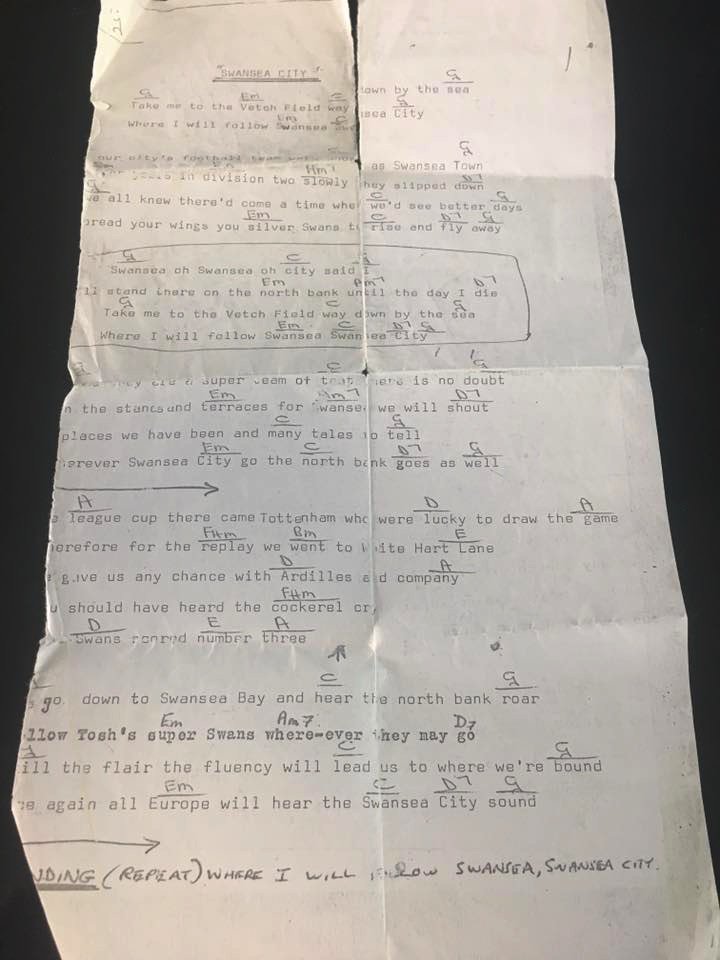 "SWANSEA CITY"
G Em C G
Take me to the Vetch Field way down by the sea
Em C G
Where I will follow Swansea Swansea City
G
our city's football team were as Swansea Town
Am7 D7
in division two slowly they slipped down
G C G
we all knew there'd come a time when we'd see better days
Em C D7 G
pread your wings you silver Swans to rise and fly away
G C G
Swansea oh Swansea oh city said I
Em Am7 D7
'll stand there on the north bank until the day I die
G C G
Take me to the Vetch Field way down by the sea
Em C D7 G
Where I will follow Swansea Swansea City
G C G
are a super team of that there is no doubt
Em Am7 D7
n the stands and terraces for Swansea we will shout
C G
places we have been and many tales to tell
Em C D7 G
herever Swansea City go the north bank goes as well
A D A
league cup there came Tottenham who were lucky to draw the game
F#m Bm E
herefore for the replay we went to White Hart Lane
D A
give us any chance with Ardilles and company
F#m
u should have heard the cockerel cr
D E A
Swans scored number three
C G
s go down to Swansea Bay and hear the north bank roar
Em Am7 D7
llow Tosh's super Swans where-ever they may go
G C G
ill the flair the fluency will lead us to where we're bound
Em C D7 G
ce again all Europe will hear the Swansea City sound
NDING (REPEAT) WHERE I WILL FOLLOW SWANSEA, SWANSEA CITY.